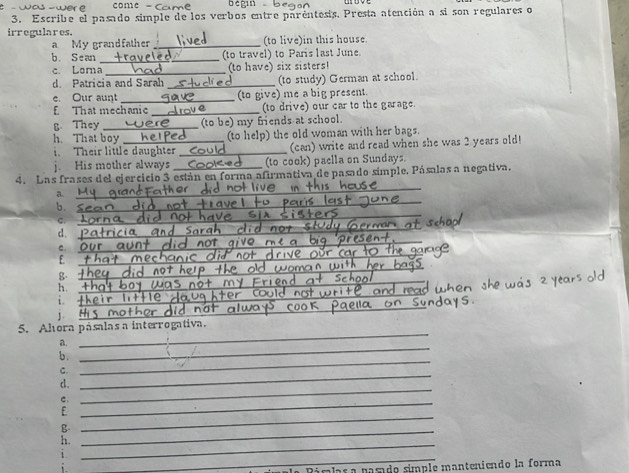 - was - were come - came begin - began
3. Escribe el pasado simple de los verbos entre paréntesis. Presta atención a si son regulares o
irregulares.
a. My grandfather lived (to live)in this house.
b. Sean traveled (to travel) to Paris last June.
c. Lorna had (to have) six sisters!
d. Patricia and Sarah studied (to study) German at school.
e. Our aunt gave (to give) me a big present.
f. That mechanic drove (to drive) our car to the garage.
g. They were (to be) my friends at school.
h. That boy helped (to help) the old woman with her bags.
i. Their little daughter could (can) write and read when she was 2 years old!
j. His mother always cooked (to cook) paella on Sundays.
4. Las frases del ejercicio 3 están en forma afirmativa de pasado simple. Pásalas a negativa.
a. My grandfather did not live in this house
b. sean did not travel to paris last June
c. Lorna did not have six sisters
d. patricia and Sarah did not study German at school
e. our aunt did not give me a big present.
f. that mechanic did not drive our car to the garage
g. they did not help the old woman with her bags
h. that boy was not my friend at school
i. their little daughter could not write and read when she was 2 years old
j. His mother did not always cook paella on Sundays.
5. Ahora pásalas a interrogativa.
a.
b.
c.
d.
e.
f.
g.
h.
i.
j.
Pásalas a pasado simple manteniendo la forma